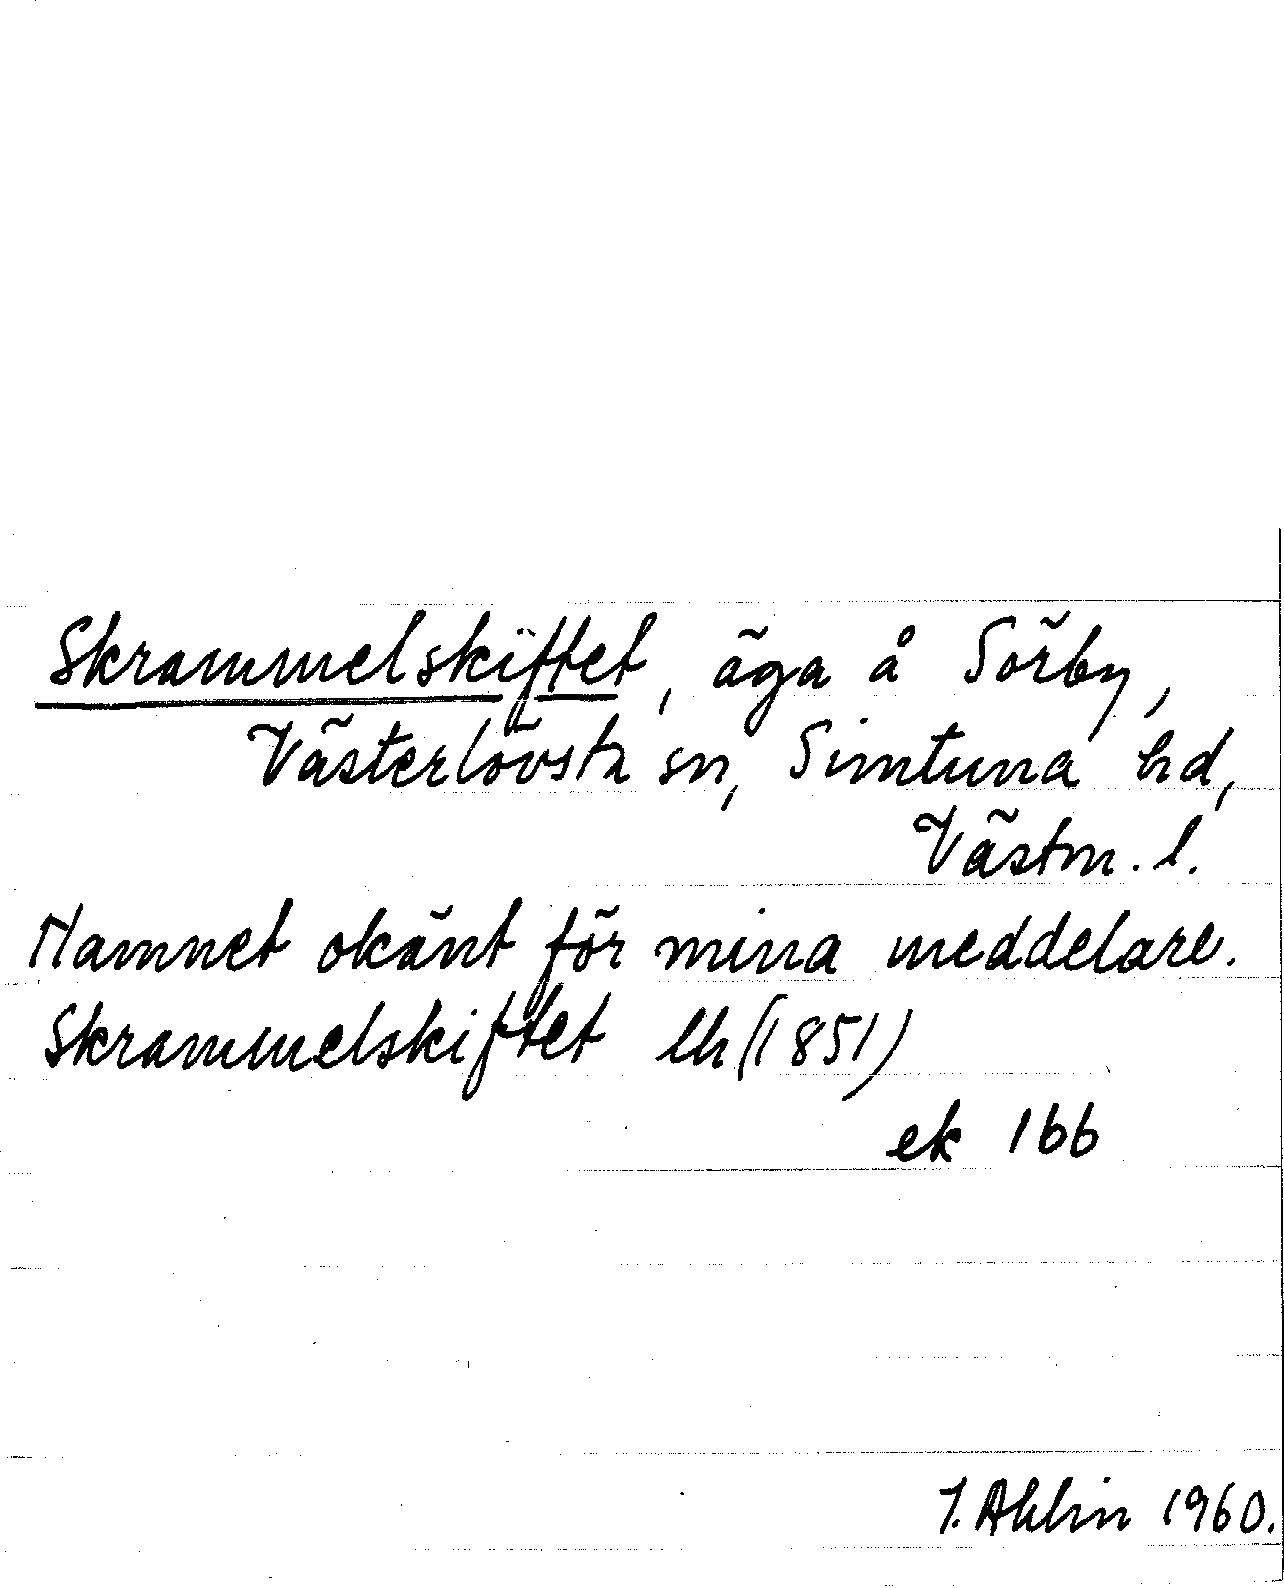 Skrammelskiftet, äga å Sörby,
Västerlövsta sn, Simtuna hd,
Västm. l.
Namnet okänt för mina meddelare.
Skrammelskiftet lh (1851)
ek 166
J. Ahlin 1960.